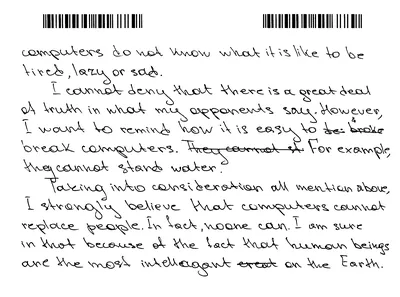 computers do not know what it is like to be
tired, lazy or sad.
I cannot deny that there is a great deal
of truth in what my opponents say. However,
I want to remind how it is easy to be broke
break computers. They cannot st. For example,
they cannot stand water.
Taking into consideration all mention above,
I strongly believe that computers cannot
replace people. In fact, noone can. I am sure
in that because of the fact that human beings
are the most intellagant creat on the Earth.